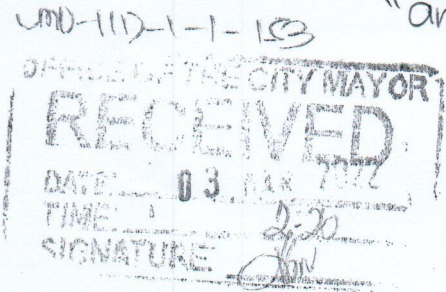 "an
-1-1-153
OFFICE OF THE CITY MAYOR
RECEIVED
DATE: 03 2022
TIME: 2:20
SIGNATURE